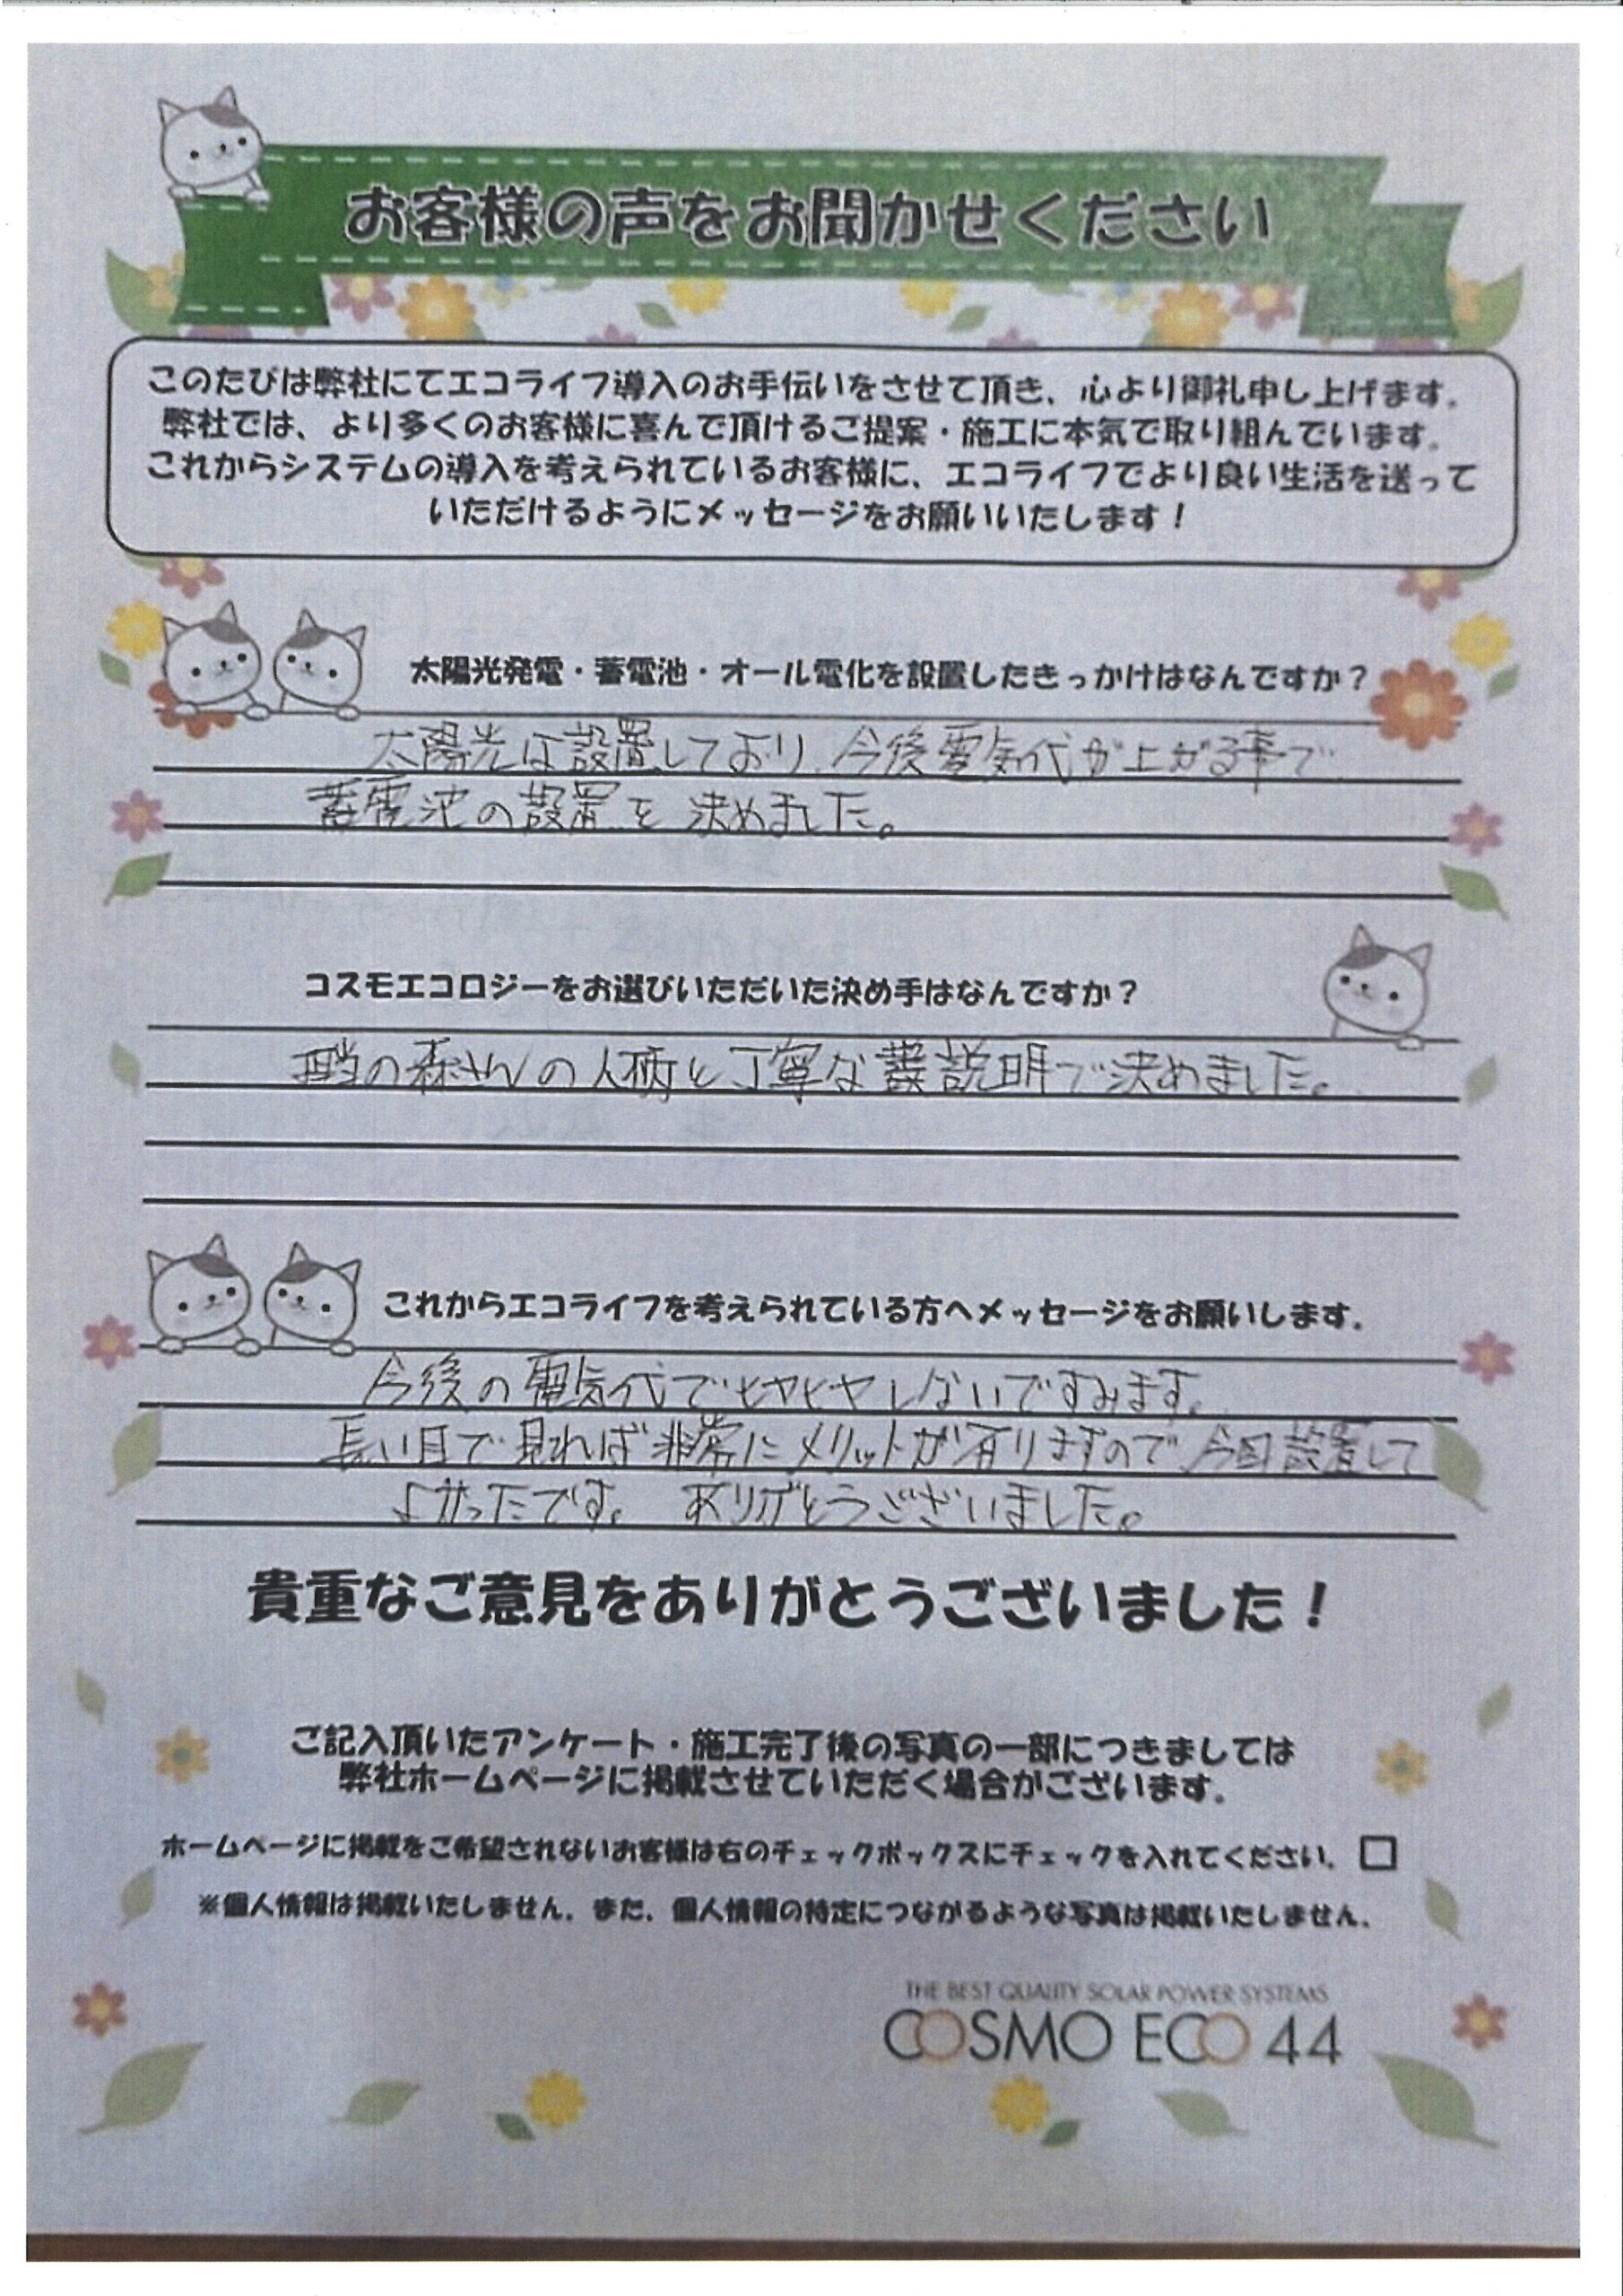 お客様の声をお聞かせください
このたびは弊社にてエコライフ導入のお手伝いをさせて頂き、心より御礼申し上げます。
弊社では、より多くのお客様に喜んで頂けるご提案・施工に本気で取り組んでいます。
これからシステムの導入を考えられているお客様に、エコライフでより良い生活を送って
いただけるようにメッセージをお願いいたします！
太陽光発電・蓄電池・オール電化を設置したきっかけはなんですか？
太陽光は設置しており、今後電気代が上がる事で
蓄電池の設置を決めました。
コスモエコロジーをお選びいただいた決め手はなんですか？
の森さんの人柄と丁寧な説明で決めました。
これからエコライフを考えられている方へメッセージをお願いします。
今後の電気代でヒヤヒヤしないですみます。
長い目で見れば非常にメリットが有りますので今回設置して
よかったです。ありがとうございました。
貴重なご意見をありがとうございました！
ご記入頂いたアンケート・施工完了後の写真の一部につきましては
弊社ホームページに掲載させていただく場合がございます。
ホームページに掲載をご希望されないお客様は右のチェックボックスにチェックを入れてください。
※個人情報は掲載いたしません。また、個人情報の特定につながるような写真は掲載いたしません。
THE BEST QUALITY SOLAR POWER SYSTEMS
COSMO ECO 44